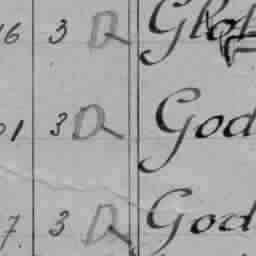 16 3 R
01 3 R God
7. 3 R God